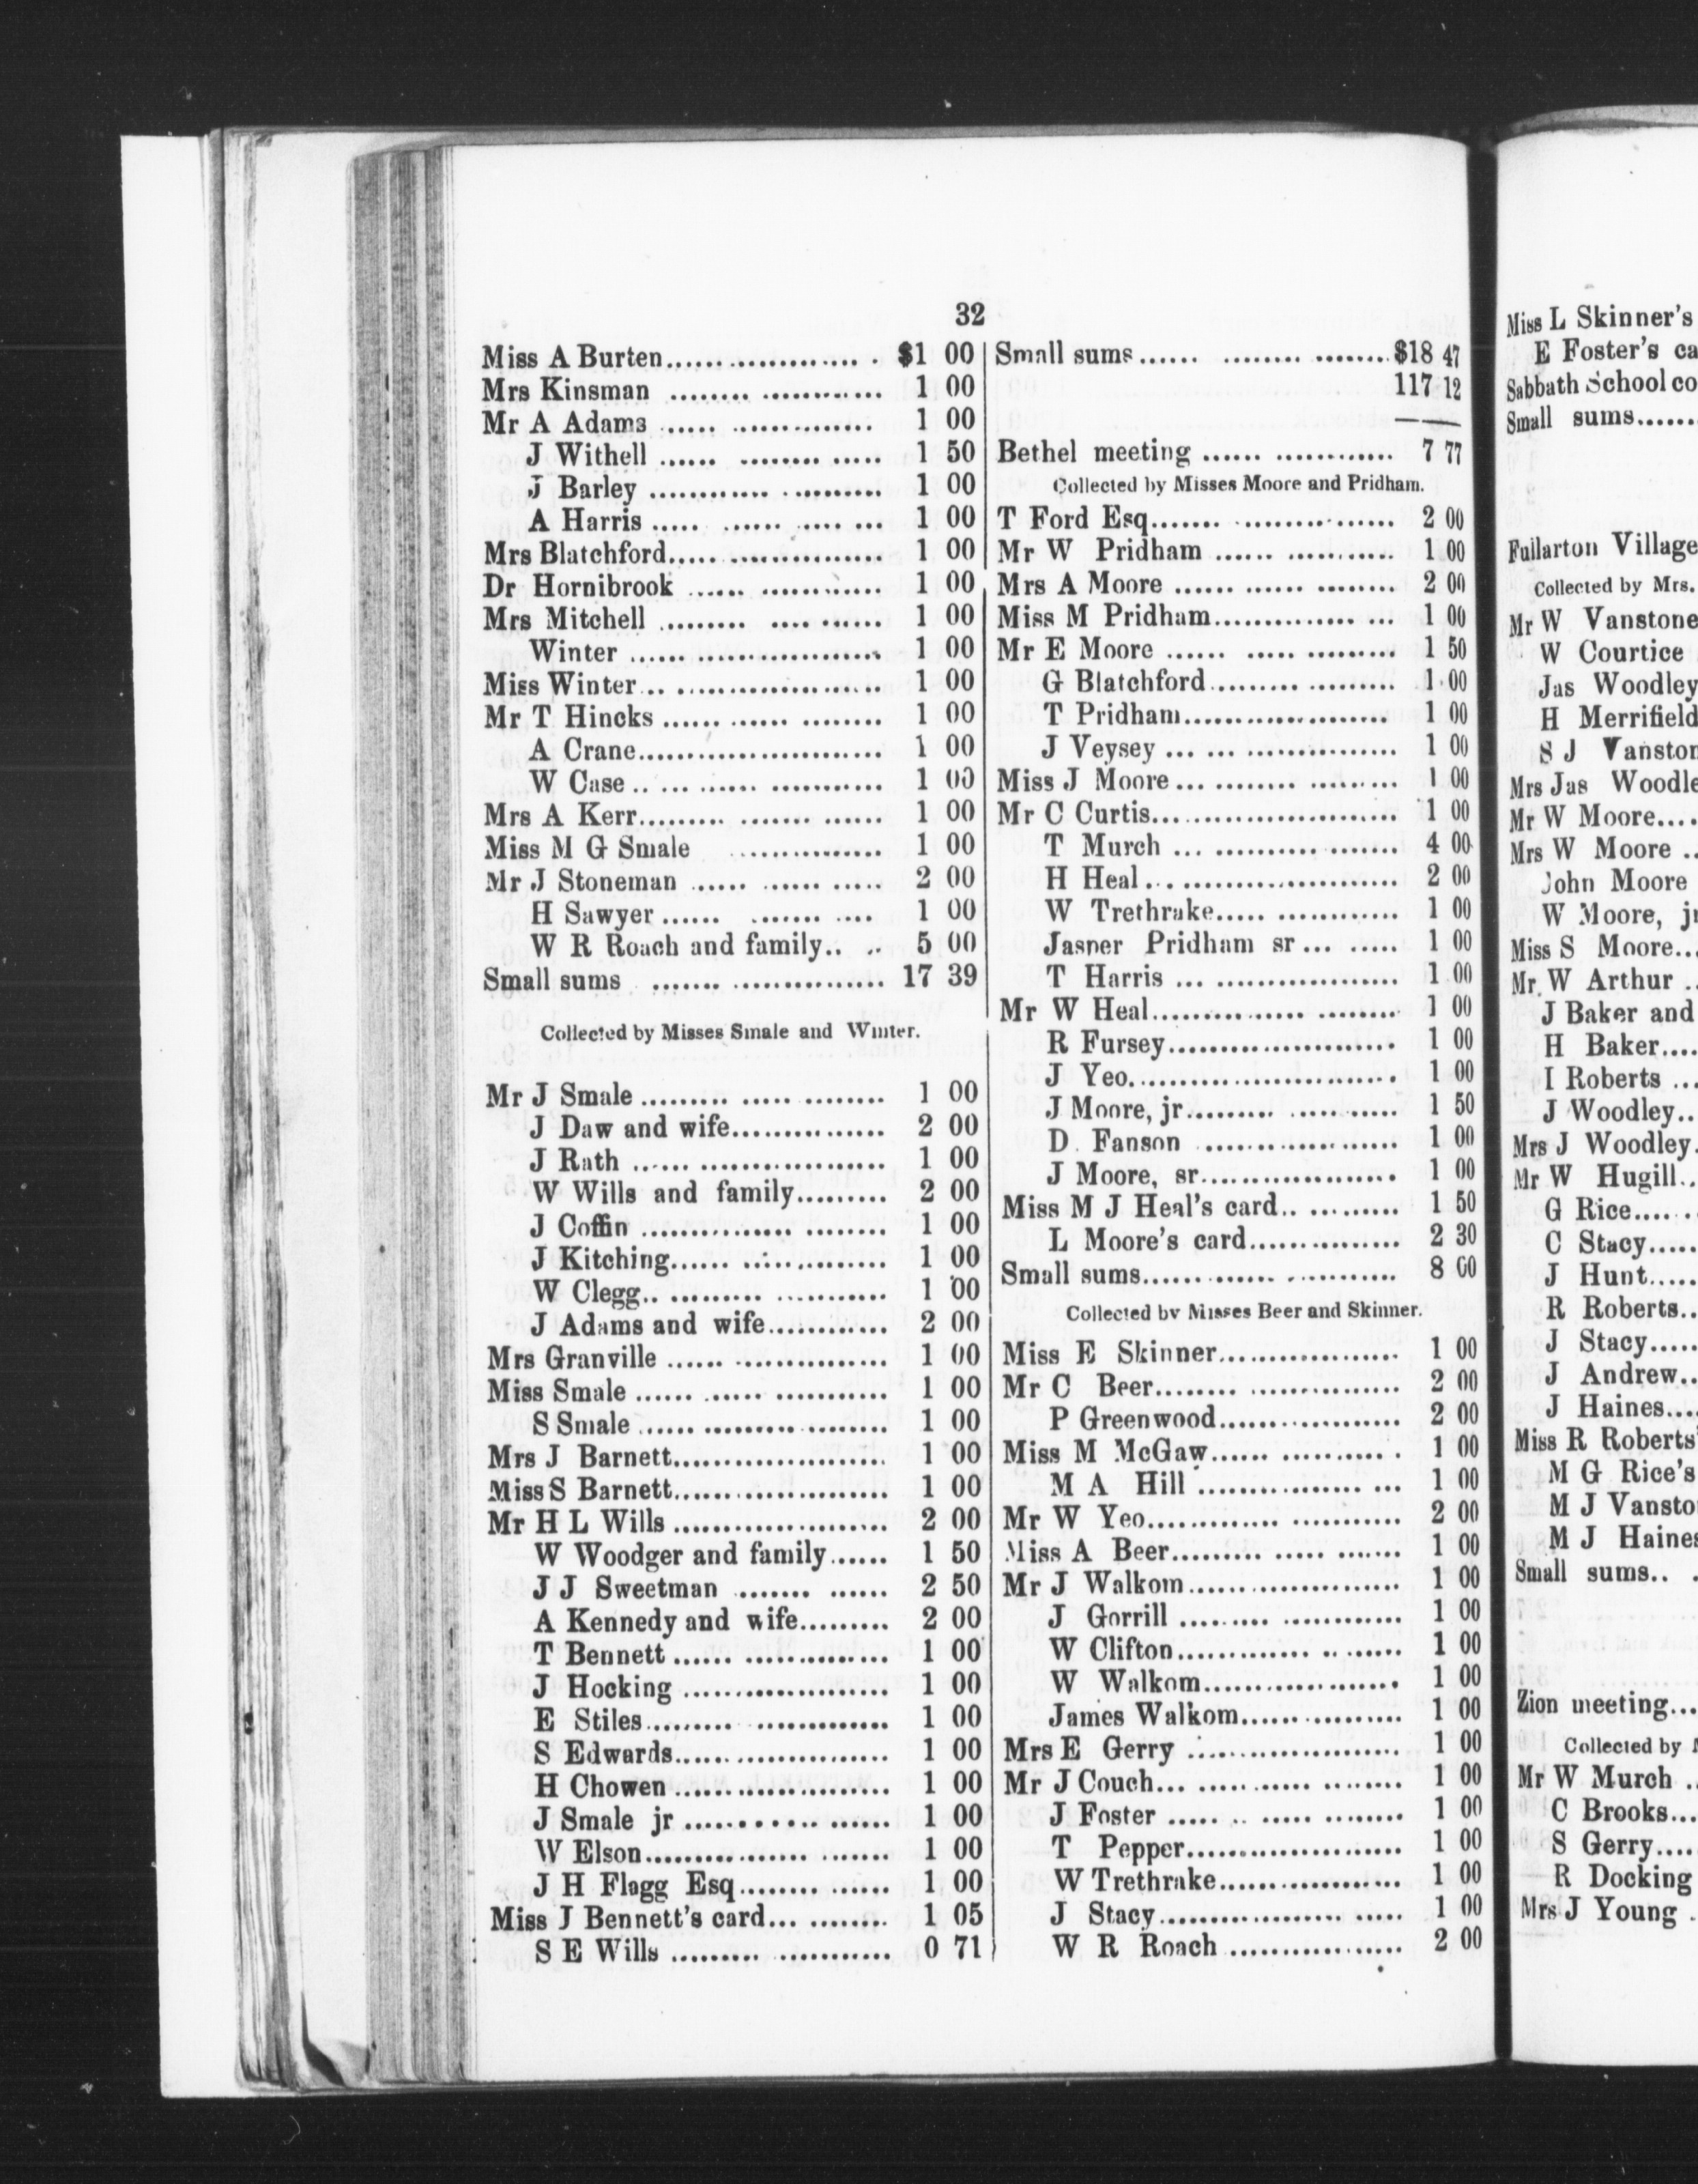 32
Miss A Burten.................... . $1 00
Mrs Kinsman ........ ............ 1 00
Mr A Adams ...... .............. 1 00
J Withell ...... ........ ..... 1 50
J Barley ............ .......... 1 00
A Harris ..... ...... ..... ... 1 00
Mrs Blatchford..... ............... 1 00
Dr Hornibrook ...... ............ 1 00
Mrs Mitchell ......... .... ...... 1 00
Winter ...... ................... 1 00
Miss Winter... .................... 1 00
Mr T Hincks ...... ...... ........ 1 00
A Crane........................ 1 00
W Case .. ... ...... ........... 1 00
Mrs A Kerr......... ....... ...... 1 00
Miss M G Smale ............... 1 00
Mr J Stoneman ...... ...... ..... 2 00
H Sawyer ...... ....... .... 1 00
W R Roach and family.. .. 5 00
Small sums ....... ............... 17 39
Collected by Misses Smale and Winter.
Mr J Smale ......... ..... ........ 1 00
J Daw and wife............... 2 00
J Rath ...... .................. 1 00
W Wills and family......... 2 00
J Coffin ............... ........ 1 00
J Kitching...... .............. 1 00
W Clegg.. ......... ........... 1 00
J Adams and wife............ 2 00
Mrs Granville ...... ............... 1 00
Miss Smale ...... ...... ........... 1 00
S Smale ...... ......... ........ 1 00
Mrs J Barnett..................... 1 00
Miss S Barnett..................... 1 00
Mr H L Wills ..................... 2 00
W Woodger and family...... 1 50
J J Sweetman ........ ...... 2 50
A Kennedy and wife......... 2 00
T Bennett ...... .............. 1 00
J Hocking .................... 1 00
E Stiles......... ............. 1 00
S Edwards..................... 1 00
H Chowen ..................... 1 00
J Smale jr .............. ...... 1 00
W Elson................ ....... 1 00
J H Flagg Esq........ ...... 1 00
Miss J Bennett's card... ........ 1 05
S E Wills ......... ........... 0 71
Small sums...... ........ ........$18 47
117 12
Bethel meeting ...... ............ 7 77
Collected by Misses Moore and Pridham.
T Ford Esq....... ............... 2 00
Mr W Pridham ...... .......... 1 00
Mrs A Moore ...... ...... ........ 2 00
Miss M Pridham.............. ... 1 00
Mr E Moore ...... ..... ......... 1 50
G Blatchford......... ......... 1 00
T Pridham.................... 1 00
J Veysey ... ... ............... 1 00
Miss J Moore ... ........ ......... 1 00
Mr C Curtis........................ 1 00
T Murch ... .......... ....... 4 00
H Heal... ...................... 2 00
W Trethrake..... ............ 1 00
Jasper Pridham sr ... ..... 1 00
T Harris ... .................. 1 00
Mr W Heal............... ........ 1 00
R Fursey...................... 1 00
J Yeo.......................... 1 00
J Moore, jr......... .......... 1 50
D. Fanson ................... 1 00
J Moore, sr................... 1 00
Miss M J Heal's card.. ......... 1 50
L Moore's card............... 2 30
Small sums............. ........... 8 60
Collected by Misses Beer and Skinner.
Miss E Skinner.................. 1 00
Mr C Beer........ ............... 2 00
P Greenwood.................. 2 00
Miss M McGaw...... .......... . 1 00
M A Hill ................ ... 1 00
Mr W Yeo............. ........... 2 00
Miss A Beer......... ..... ....... 1 00
Mr J Walkom..................... 1 00
J Gorrill ......... ............ 1 00
W Clifton............. .. ....... 1 00
W Walkom................... 1 00
James Walkom................ 1 00
Mrs E Gerry ..................... 1 00
Mr J Couch... ..... ...... ........ 1 00
J Foster ..... .. ..... ........ 1 00
T Pepper..................... 1 00
W Trethrake.................. 1 00
J Stacy.................. ..... 1 00
W R Roach ................. 2 00
Miss L Skinner's
E Foster's ca
Sabbath School co
Small sums......
Fullarton Village
Collected by Mrs.
Mr W Vanstone
W Courtice
Jas Woodley
H Merrifield
S J Vanston
Mrs Jas Woodle
Mr W Moore....
Mrs W Moore ..
John Moore
W Moore, jr
Miss S Moore...
Mr W Arthur ..
J Baker and
H Baker....
I Roberts ...
J Woodley..
Mrs J Woodley.
Mr W Hugill..
G Rice......
C Stacy.....
J Hunt.....
R Roberts..
J Stacy.....
J Andrew..
J Haines....
Miss R Roberts'
M G Rice's
M J Vansto
M J Haines
Small sums.. .
Zion meeting...
Collected by
Mr W Murch ..
C Brooks...
S Gerry....
R Docking
Mrs J Young .